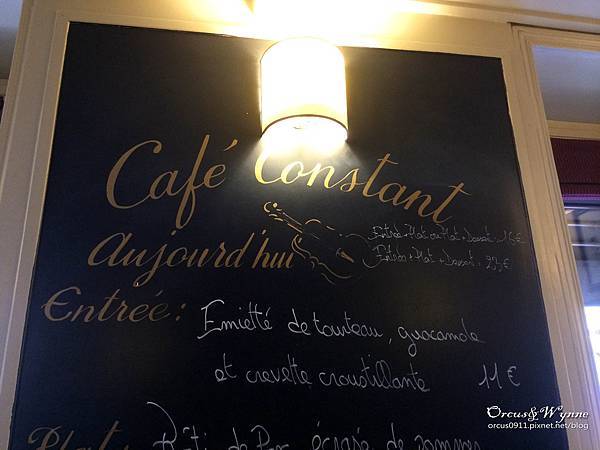 Café Constant
Aujourd'hui
Entrée + Plat ou Plat + Dessert : 16 €
Entrée + Plat + Dessert : 23 €
Entrée :
Emietté de tourteau, guacamole
et crevette croustillante 11 €
Plat
Rôti de Porc, écrasé de pommes
Orcus&Wynne
orcus0911.pixnet.net/blog